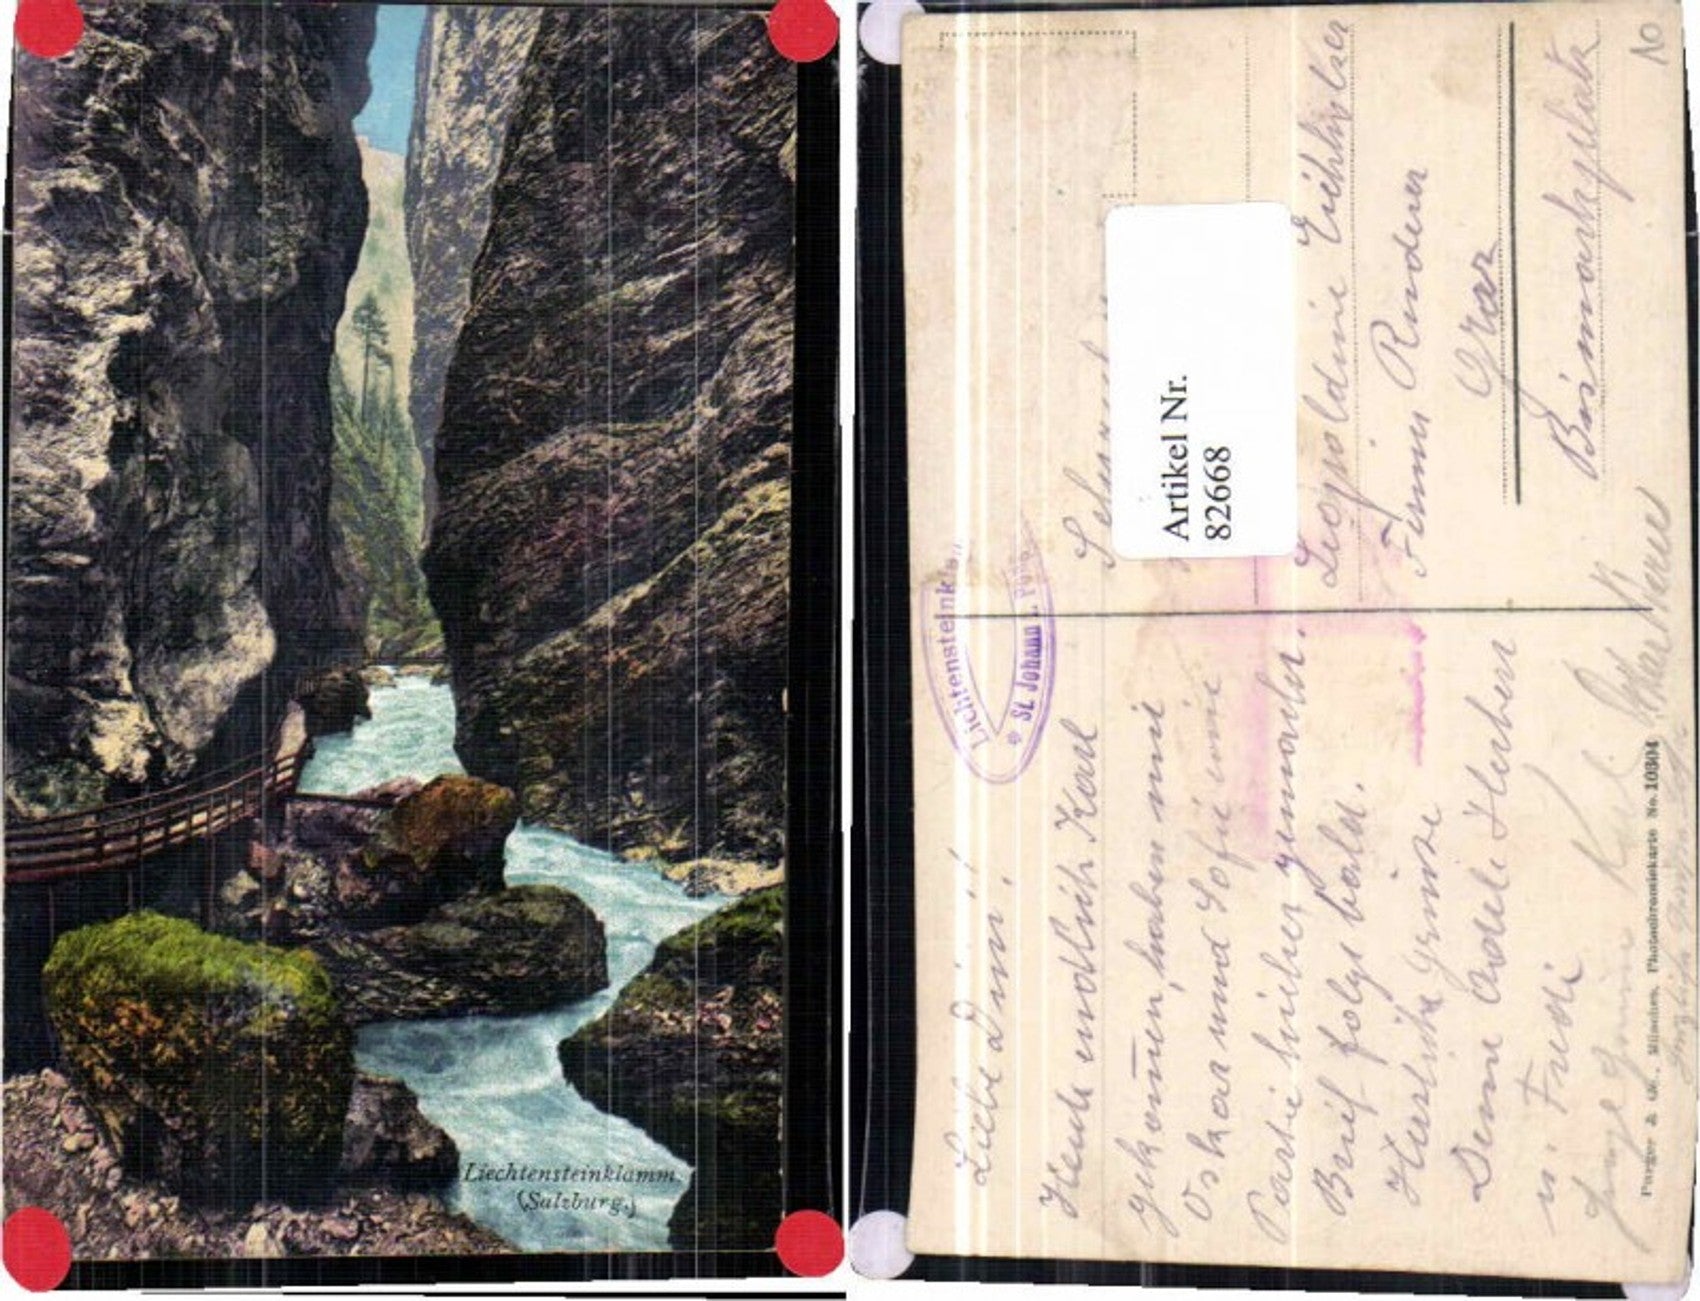 Liechtensteinklamm.
(Salzburg.)
Liechtensteinkla
* St. Johann i. Pong
Liebe Dini!
Heute endlich Karl
gekommen, haben mit
Oskar und Sofie eine
Partie hieher gemacht.
Brief folgt bald.
Herzliche Grüsse
Deine Adele Herbert
u. Fredi
Artikel Nr.
82668
Leopoldine
Firma
Graz
Bismarkplatz
10
Purger & Co., München, Photochromiekarte No. 10304